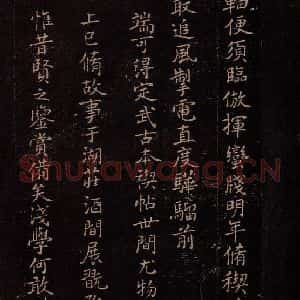 軸便須臨倣揮蠻牋明年脩稧
取追風掣電直度驊騮前
端可得定武古本稧帖世間尤物
上巳脩故事于湖莊酒間展翫
惟昔賢之鑒賞備矣淺學何敢
Shufawang.CN